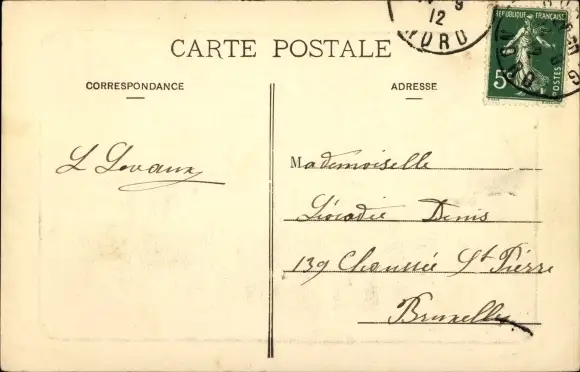 CARTE POSTALE
CORRESPONDANCE
ADRESSE
RÉPUBLIQUE FRANÇAISE
5c
POSTES
9
12
NORD
L Lovaux
Mademoiselle
Léocadie Denis
139 Chaussée St Pierre
Bruxelles